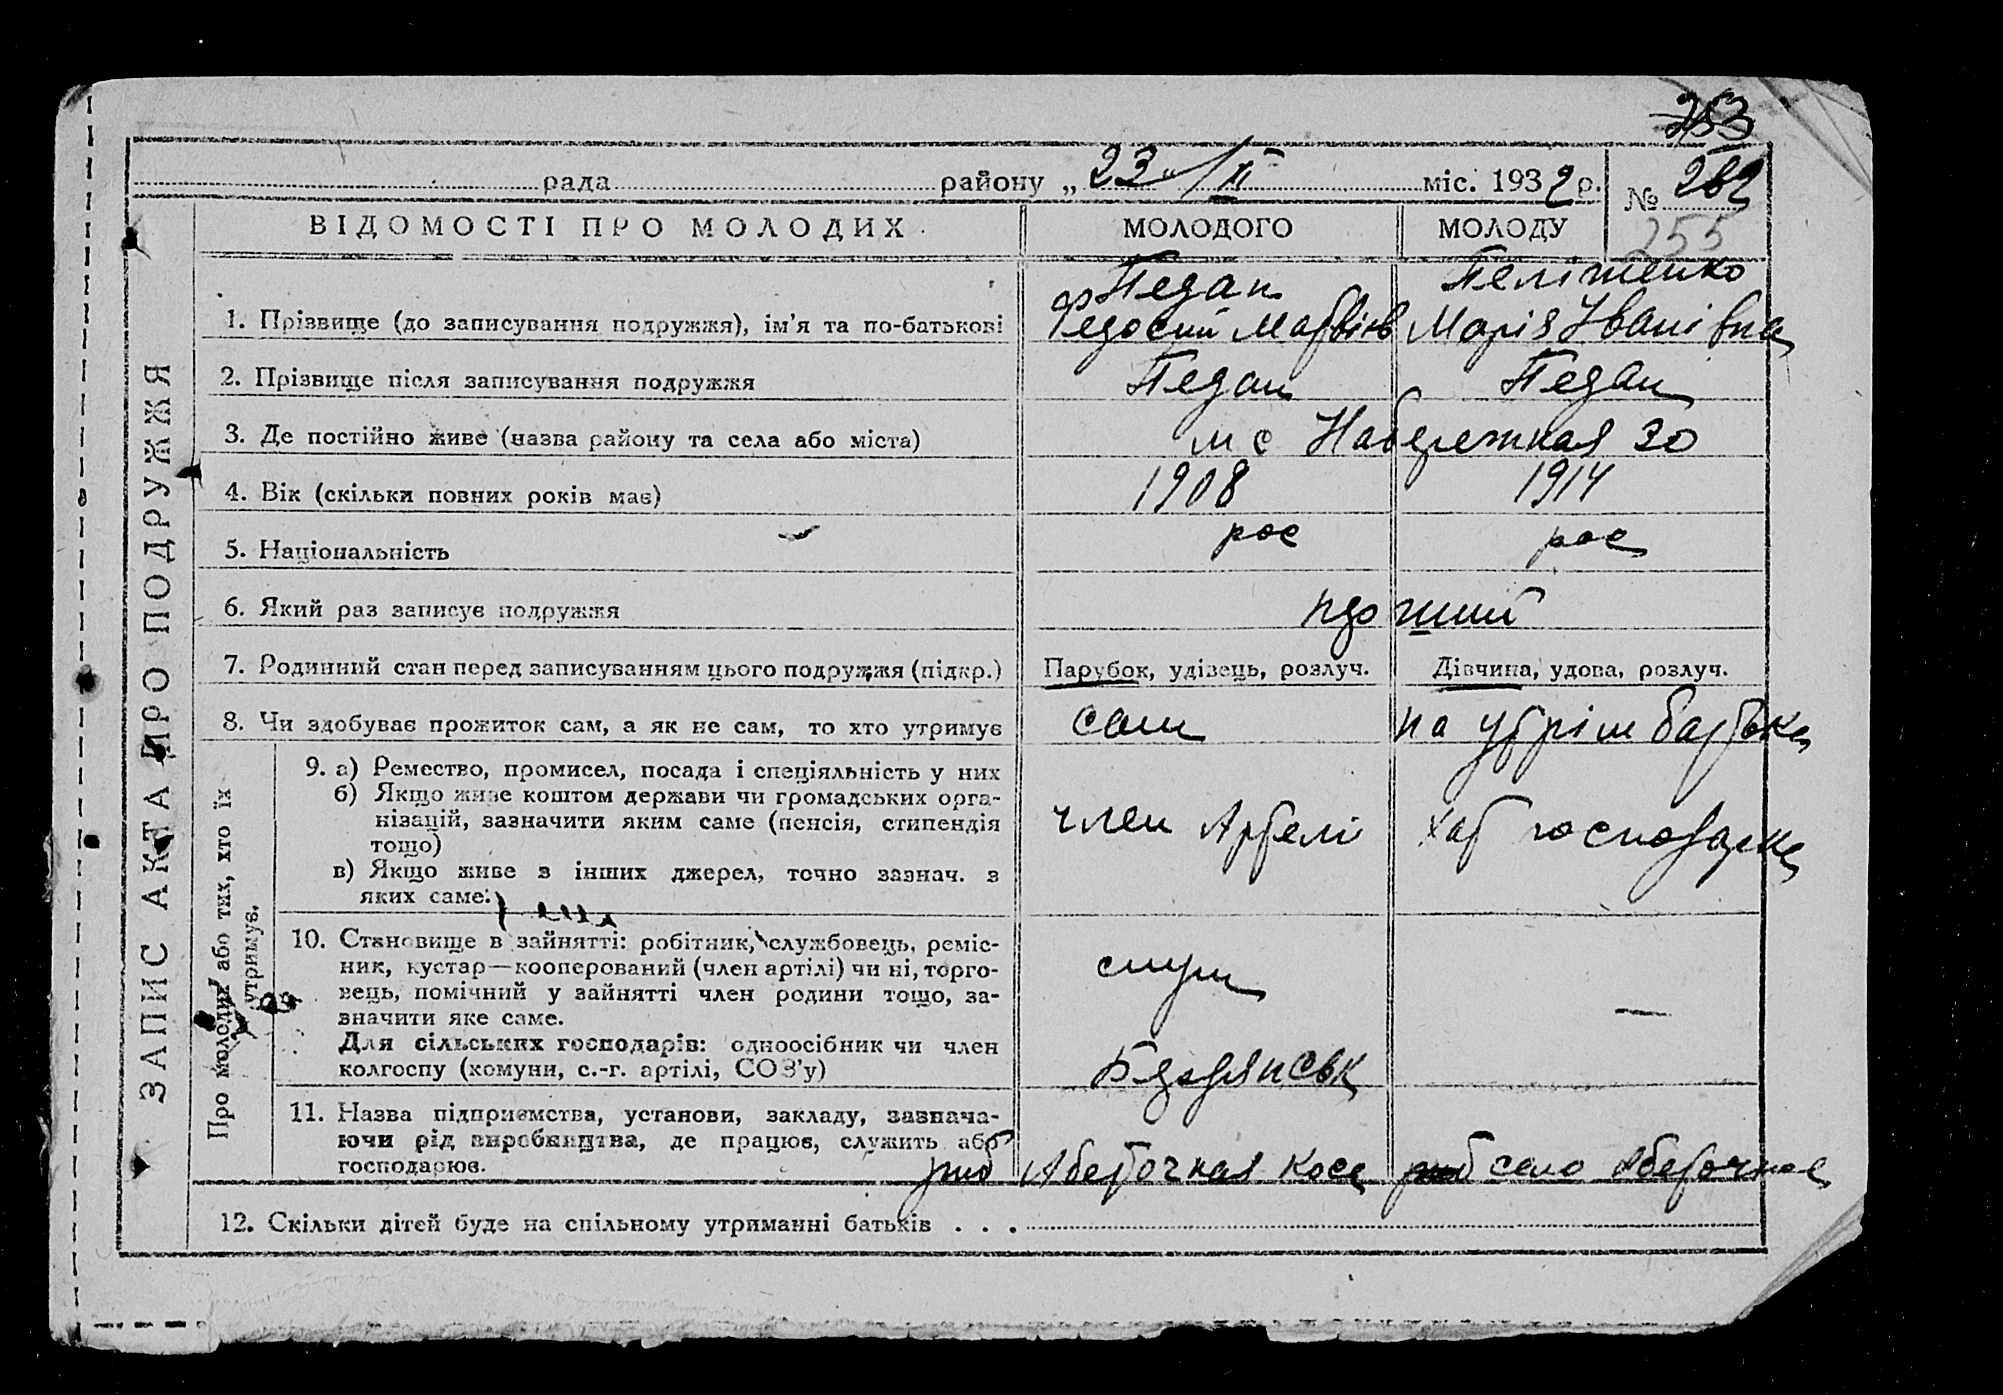 253
рада району „ 23 " / ІІ міс. 1932 р. № 262
255
ВІДОМОСТІ ПРО МОЛОДИХ МОЛОДОГО МОЛОДУ
Педан
1. Прізвище (до записування подружжя), ім'я та по-батькові Федосий Матвієв Марія Іванівна
2. Прізвище після записування подружжя Педан Педан
3. Де постійно живе (назва району та села або міста) м с Набережная 30
4. Вік (скільки повних років має) 1908 1914
5. Національність рос рос
6. Який раз записує подружжя
7. Родинний стан перед записуванням цього подружжя (підкр.) Парубок, удівець, розлуч. Дівчина, удова, розлуч.
8. Чи здобуває прожиток сам, а як не сам, то хто утримує сам на утрім батька
9. а) Ремество, промисел, посада і спеціяльність у них
б) Якщо живе коштом держави чи громадських орга-
нізацій, зазначити яким саме (пенсія, стипендія
тощо)
член Артелі хат господарка
в) Якщо живе з інших джерел, точно зазнач. з
яких саме:
10. Становище в зайнятті: робітник, службовець, реміс-
ник, кустар—кооперований (член артілі) чи ні, торго-
вець, помічний у зайнятті член родини тощо, за-
значити яке саме.
—
Для сільських господарів: одноосібник чи член
колгоспу (комуни, с.-г. артілі, СОЗ'у)
Бердянськ
11. Назва підприємства, установи, закладу, зазнача-
ючи рід виробництва, де працює, служить або
господарює.
Абеточная коса село
12. Скільки дітей буде на спільному утриманні батьків . . .
ЗАПИС АКТА ПРО ПОДРУЖЖЯ
Про молодих або тих, хто їх
утримує.